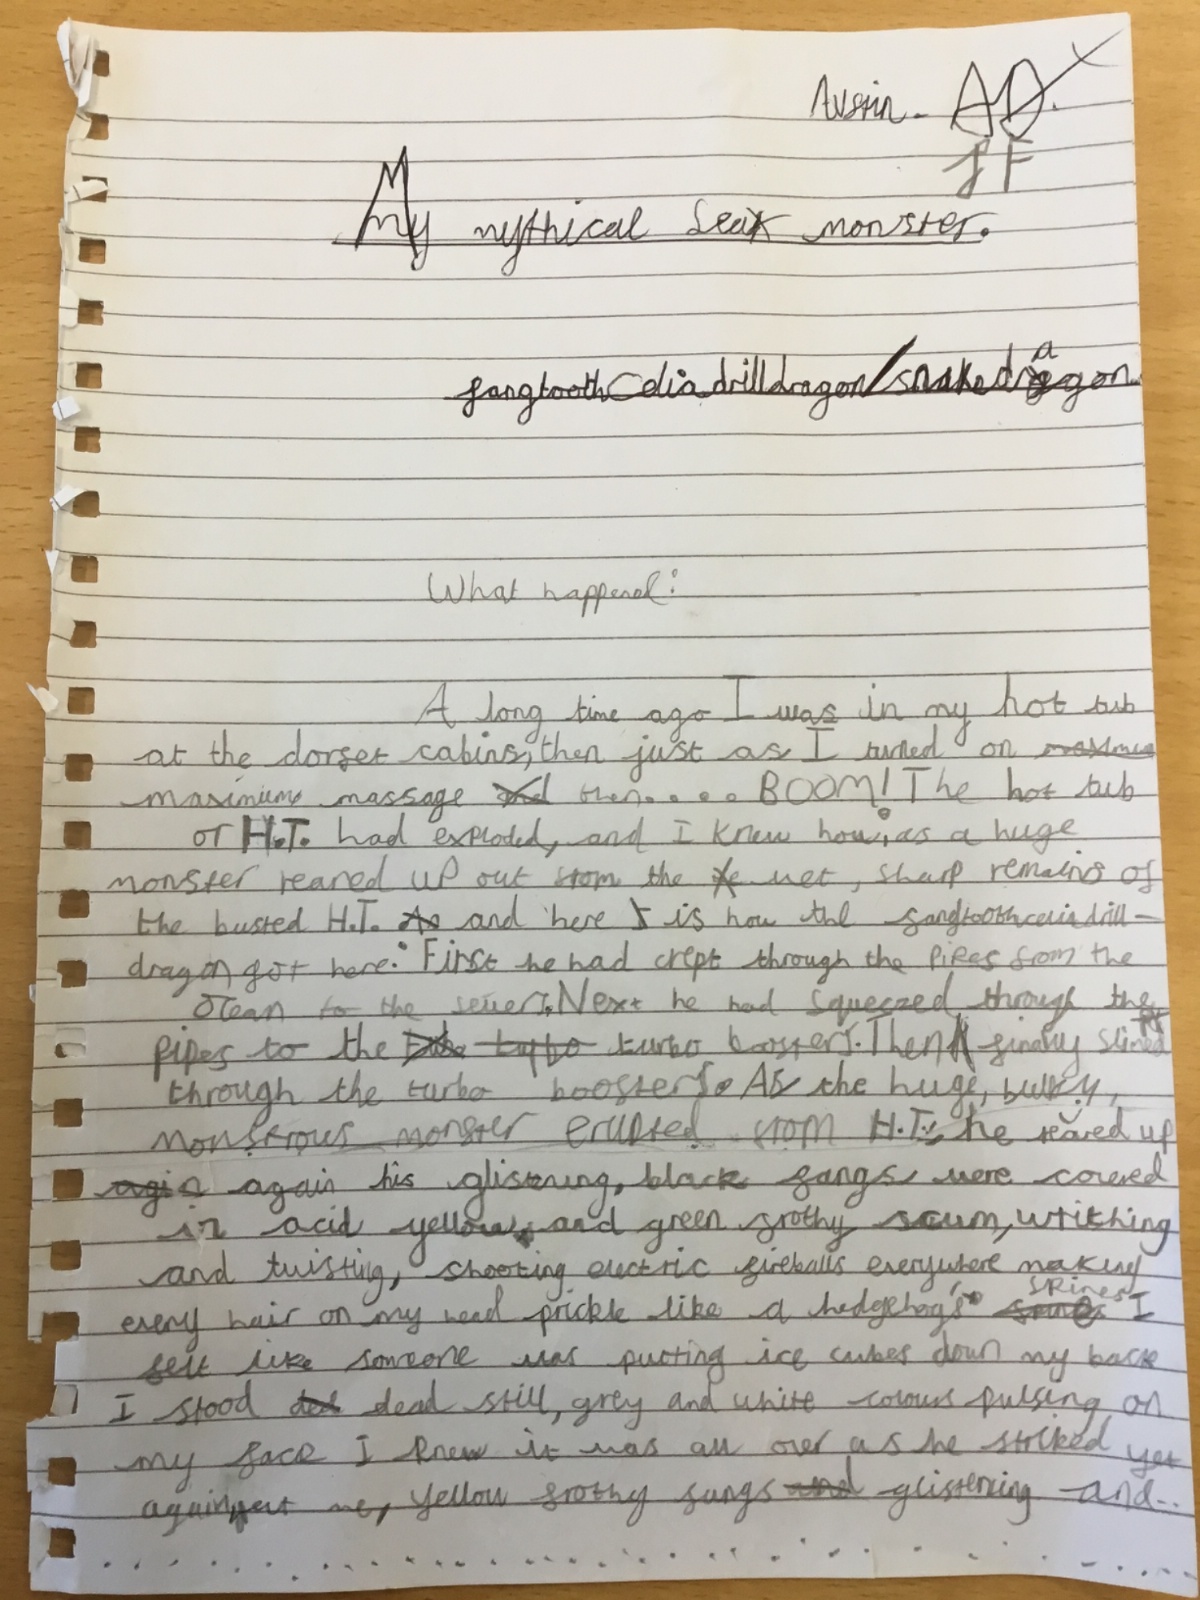 Austin - AD.
JF
My mythical Seak monster.
fangtoothCeliadrilldragon/snakedragon.
What happened:
A long time ago I was in my hot tub
at the dorset cabins, then just as I turned on
maximum massage and then.... BOOM! The hot tub
or H.T. had exploded, and I knew how, as a huge
monster reared up out from the wet, sharp remains of
the busted H.T. and here is how the fangtoothceliadrill-
dragon got here: First he had crept through the pipes from the
otean to the sewers. Next he had squeezed through the
pipes to the turbo turbo boosters. Then finally slimed
through the turbo boosters. As the huge, bulky,
monstrous monster erupted from H.T., he reared up
agin again his glistening, black fangs were covered
in acid yellow, and green frothy scum, writhing
and twisting, shooting electric fireballs everywhere making
every hair on my head prickle like a hedgehog's spines I
felt like someone was putting ice cubes down my back
I stood dead still, grey and white colours pulsing on
my face I knew it was all over as he striked yet
again, me, yellow frothy fangs and glistening and..